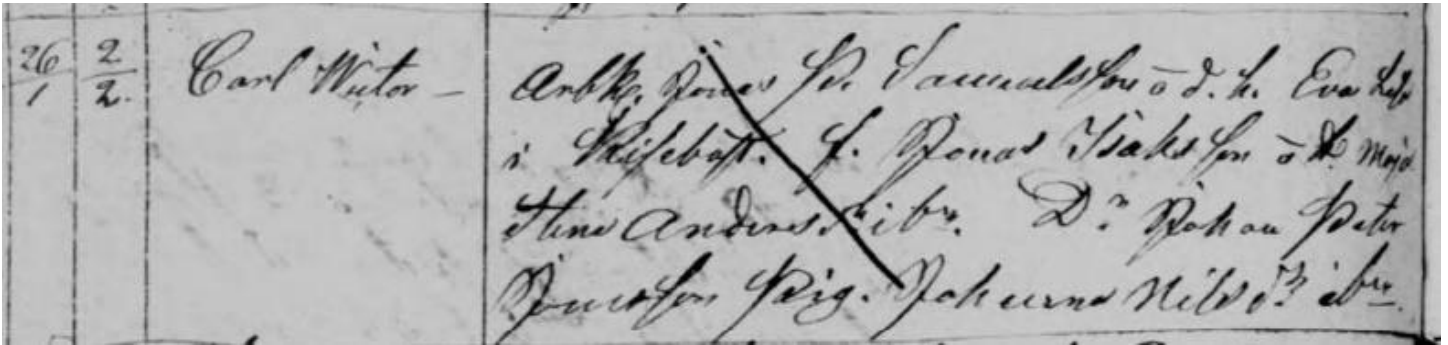 26/1 2/2 Carl Victor – Arbk. Jonas P. Samuelsson o d. h. Eva Lis
i f. Jonas Isaksson o h. Maja
Stina Anders i bm. Dn Johan Peter
Jonsson Pig. Johanna Nils Dr ibm.